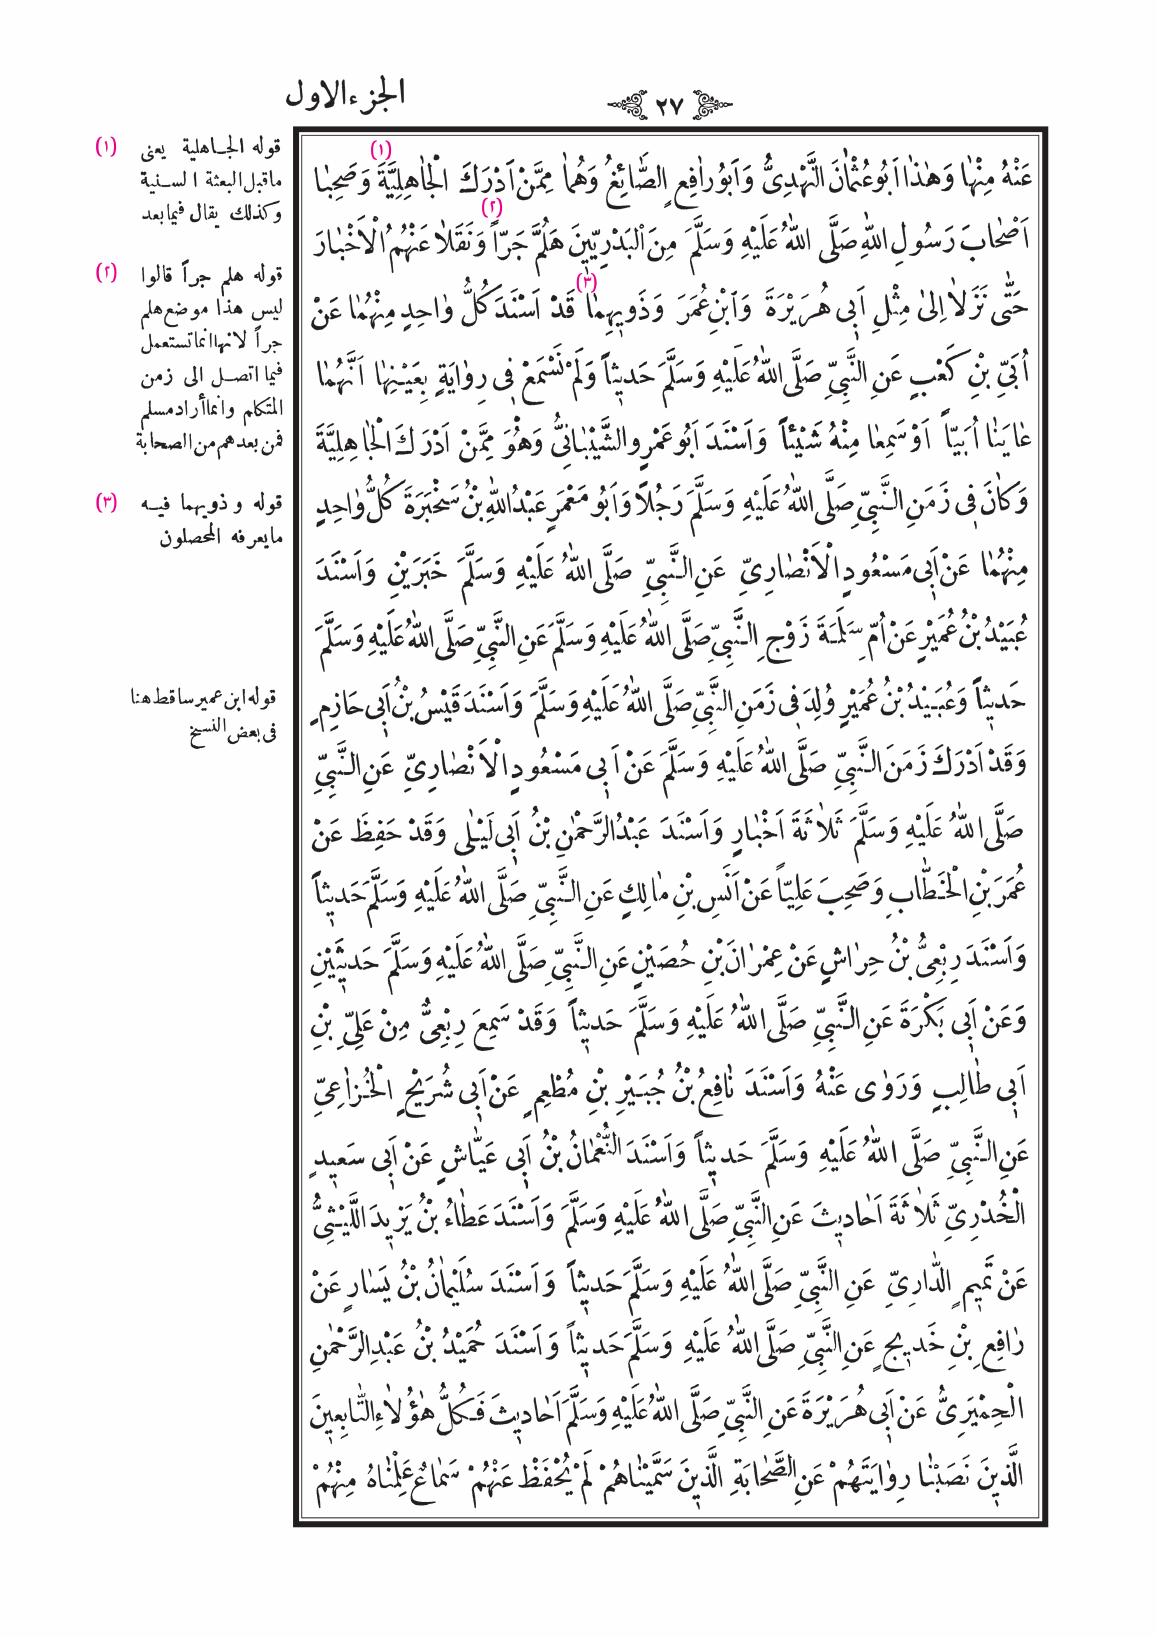 الجزء الاول
٢٧
عَنْهُ مِنْهَا وَهٰذَا اَبُو عُثْمَانَ النَّهْدِىُّ وَاَبُو رَافِعٍ الصَّائِغُ وَهُمَا مِمَّنْ اَدْرَكَ الْجَاهِلِيَّةَ (١) وَصَحِبَا
اَصْحَابَ رَسُولِ اللّٰهِ صَلَّى اللّٰهُ عَلَيْهِ وَسَلَّمَ مِنَ الْبَدْرِيِّينَ هَلُمَّ جَرّاً (٢) وَنَقَلَا عَنْهُمُ الْاَخْبَارَ
حَتّٰى نَزَلَا اِلٰى مِثْلِ اَبِى هُرَيْرَةَ وَابْنِ عُمَرَ وَذَوِيهِمَا (٣) قَدْ اَسْنَدَ كُلُّ وَاحِدٍ مِنْهُمَا عَنْ
اُبَىِّ بْنِ كَعْبٍ عَنِ النَّبِىِّ صَلَّى اللّٰهُ عَلَيْهِ وَسَلَّمَ حَدِيثاً وَلَمْ نَسْمَعْ فِى رِوَايَةٍ بِعَيْنِهَا اَنَّهُمَا
عَايَنَا اُبَيّاً اَوْ سَمِعَا مِنْهُ شَيْئاً وَاَسْنَدَ اَبُو عَمْرٍو الشَّيْبَانِىُّ وَهُوَ مِمَّنْ اَدْرَكَ الْجَاهِلِيَّةَ
وَكَانَ فِى زَمَنِ النَّبِىِّ صَلَّى اللّٰهُ عَلَيْهِ وَسَلَّمَ رَجُلاً وَاَبُو مَعْمَرٍ عَبْدُ اللّٰهِ بْنُ سَخْبَرَةَ كُلُّ وَاحِدٍ
مِنْهُمَا عَنْ اَبِى مَسْعُودٍ الْاَنْصَارِىِّ عَنِ النَّبِىِّ صَلَّى اللّٰهُ عَلَيْهِ وَسَلَّمَ خَبَرَيْنِ وَاَسْنَدَ
عُبَيْدُ بْنُ عُمَيْرٍ عَنْ اُمِّ سَلَمَةَ زَوْجِ النَّبِىِّ صَلَّى اللّٰهُ عَلَيْهِ وَسَلَّمَ عَنِ النَّبِىِّ صَلَّى اللّٰهُ عَلَيْهِ وَسَلَّمَ
حَدِيثاً وَعُبَيْدُ بْنُ عُمَيْرٍ وُلِدَ فِى زَمَنِ النَّبِىِّ صَلَّى اللّٰهُ عَلَيْهِ وَسَلَّمَ وَاَسْنَدَ قَيْسُ بْنُ اَبِى حَازِمٍ
وَقَدْ اَدْرَكَ زَمَنَ النَّبِىِّ صَلَّى اللّٰهُ عَلَيْهِ وَسَلَّمَ عَنْ اَبِى مَسْعُودٍ الْاَنْصَارِىِّ عَنِ النَّبِىِّ
صَلَّى اللّٰهُ عَلَيْهِ وَسَلَّمَ ثَلَاثَةَ اَخْبَارٍ وَاَسْنَدَ عَبْدُ الرَّحْمٰنِ بْنُ اَبِى لَيْلٰى وَقَدْ حَفِظَ عَنْ
عُمَرَ بْنِ الْخَطَّابِ وَصَحِبَ عَلِيّاً عَنْ اَنَسِ بْنِ مَالِكٍ عَنِ النَّبِىِّ صَلَّى اللّٰهُ عَلَيْهِ وَسَلَّمَ حَدِيثاً
وَاَسْنَدَ رِبْعِىُّ بْنُ حِرَاشٍ عَنْ عِمْرَانَ بْنِ حُصَيْنٍ عَنِ النَّبِىِّ صَلَّى اللّٰهُ عَلَيْهِ وَسَلَّمَ حَدِيثَيْنِ
وَعَنْ اَبِى بَكْرَةَ عَنِ النَّبِىِّ صَلَّى اللّٰهُ عَلَيْهِ وَسَلَّمَ حَدِيثاً وَقَدْ سَمِعَ رِبْعِىٌّ مِنْ عَلِىِّ بْنِ
اَبِى طَالِبٍ وَرَوٰى عَنْهُ وَاَسْنَدَ نَافِعُ بْنُ جُبَيْرِ بْنِ مُطْعِمٍ عَنْ اَبِى شُرَيْحٍ الْخُزَاعِىِّ
عَنِ النَّبِىِّ صَلَّى اللّٰهُ عَلَيْهِ وَسَلَّمَ حَدِيثاً وَاَسْنَدَ النُّعْمَانُ بْنُ اَبِى عَيَّاشٍ عَنْ اَبِى سَعِيدٍ
الْخُدْرِىِّ ثَلَاثَةَ اَحَادِيثَ عَنِ النَّبِىِّ صَلَّى اللّٰهُ عَلَيْهِ وَسَلَّمَ وَاَسْنَدَ عَطَاءُ بْنُ يَزِيدَ اللَّيْثِىُّ
عَنْ تَمِيمٍ الدَّارِىِّ عَنِ النَّبِىِّ صَلَّى اللّٰهُ عَلَيْهِ وَسَلَّمَ حَدِيثاً وَاَسْنَدَ سُلَيْمَانُ بْنُ يَسَارٍ عَنْ
رَافِعِ بْنِ خَدِيجٍ عَنِ النَّبِىِّ صَلَّى اللّٰهُ عَلَيْهِ وَسَلَّمَ حَدِيثاً وَاَسْنَدَ حُمَيْدُ بْنُ عَبْدِ الرَّحْمٰنِ
الْحِمْيَرِىُّ عَنْ اَبِى هُرَيْرَةَ عَنِ النَّبِىِّ صَلَّى اللّٰهُ عَلَيْهِ وَسَلَّمَ اَحَادِيثَ فَكُلُّ هٰؤُلَاءِ التَّابِعِينَ
الَّذِينَ نَصَبْنَا رِوَايَتَهُمْ عَنِ الصَّحَابَةِ الَّذِينَ سَمَّيْنَاهُمْ لَمْ يُحْفَظْ عَنْهُمْ سَمَاعٌ عَلِمْنَاهُ مِنْهُمْ
(١) قوله الجاهلية يعنى
ماقبل البعثة السنية
وكذلك يقال فيما بعد
(٢) قوله هلم جراً قالوا
ليس هذا موضع هلم
جراً لانها انما تستعمل
فيما اتصل الى زمن
المتكلم وانما أراد مسلم
فمن بعدهم من الصحابة
(٣) قوله وذويهما فيه
مايعرفه المحصلون
قوله ابن عمير ساقط هنا
فى بعض النسخ